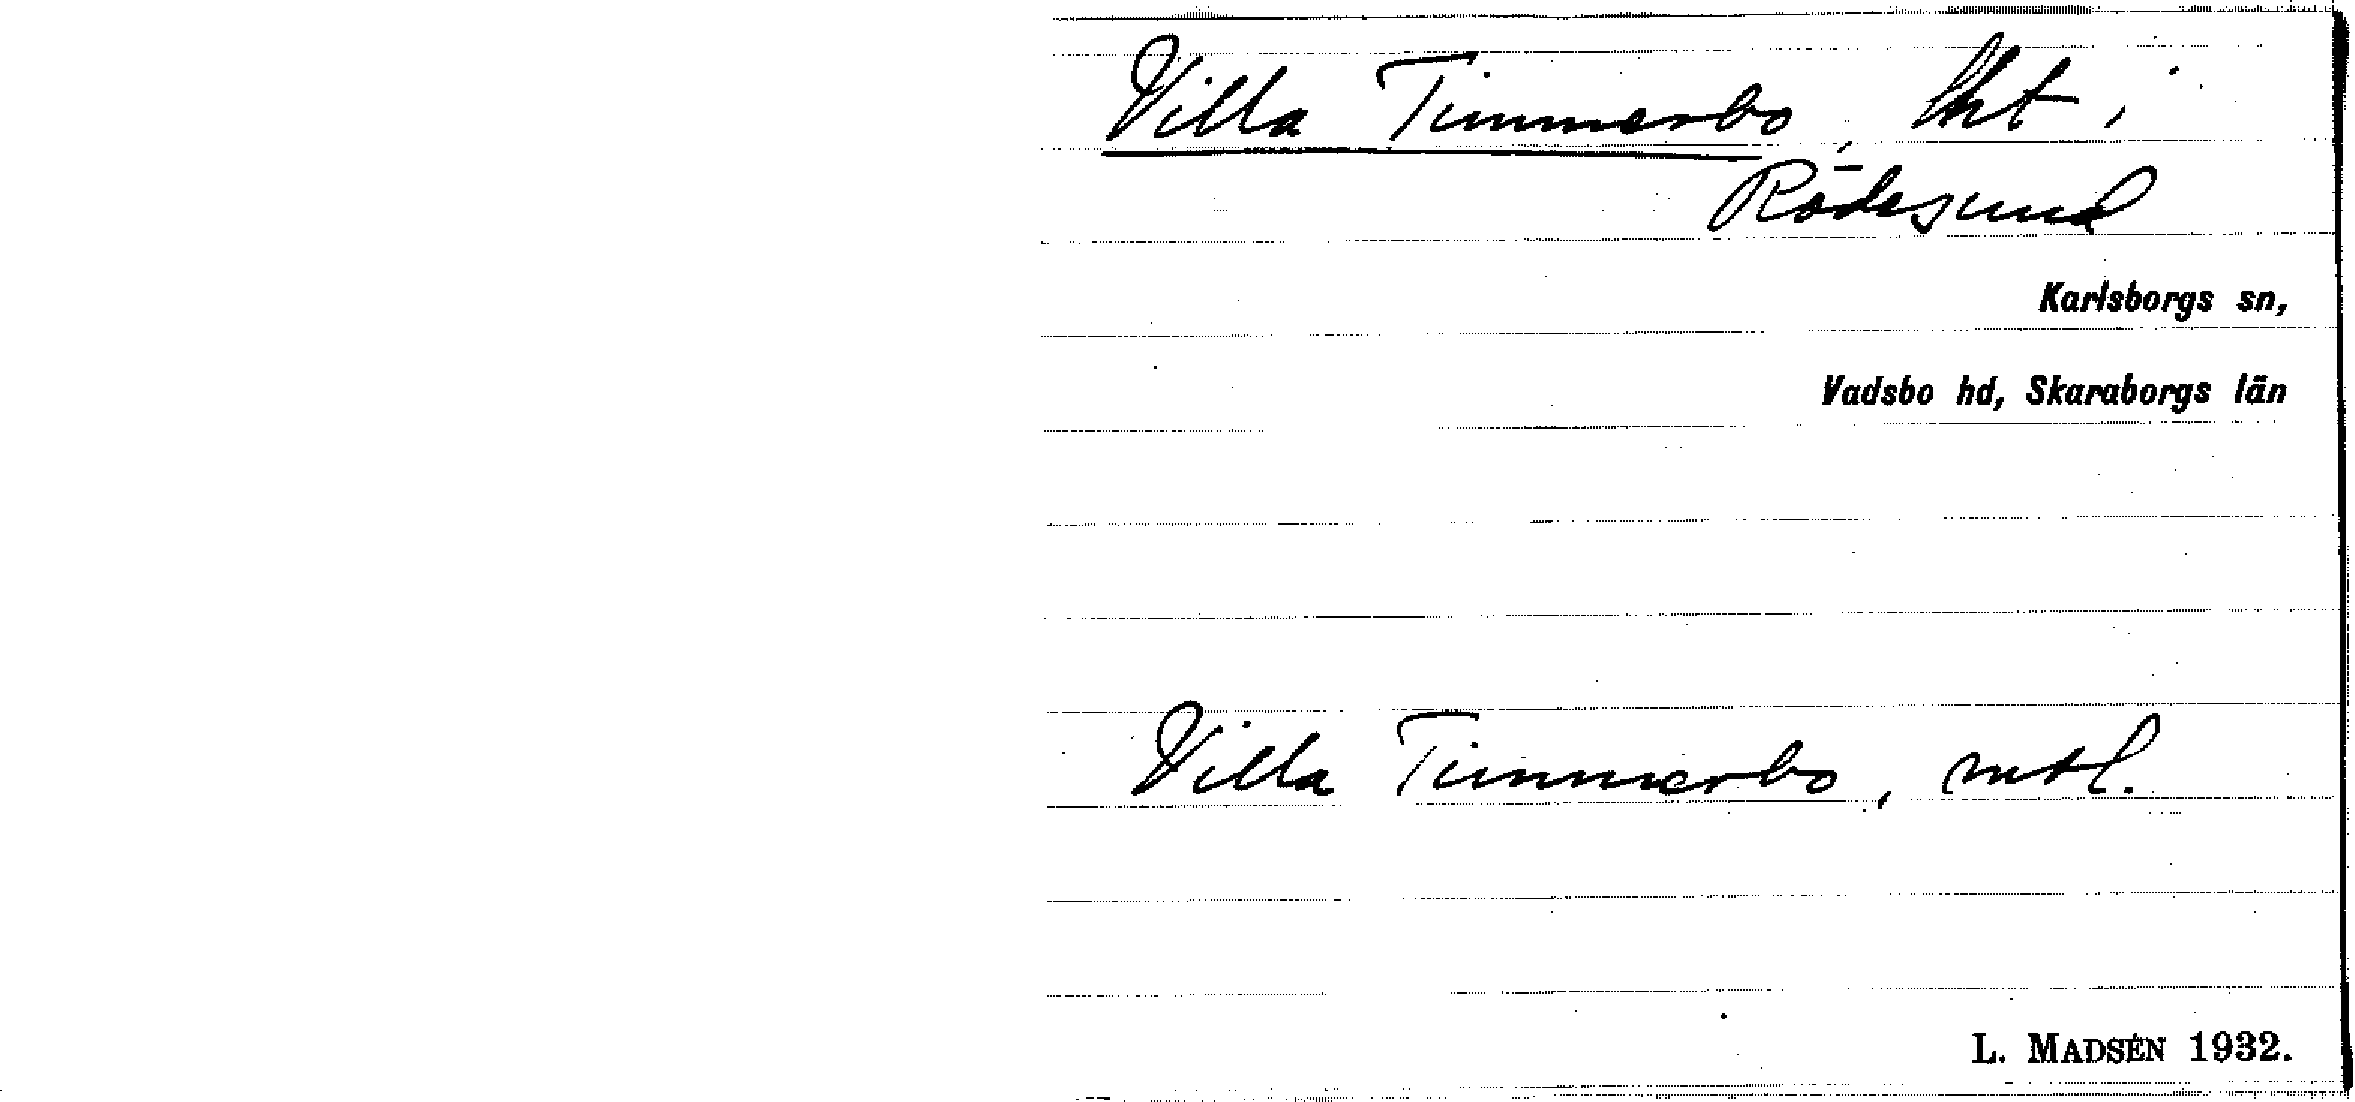 Villa Timmerbo, lht i
Rödesund
Karlsborgs sn,
Vadsbo hd, Skaraborgs län
Villa Timmerbo, mtl.
L. MADSÉN 1932.